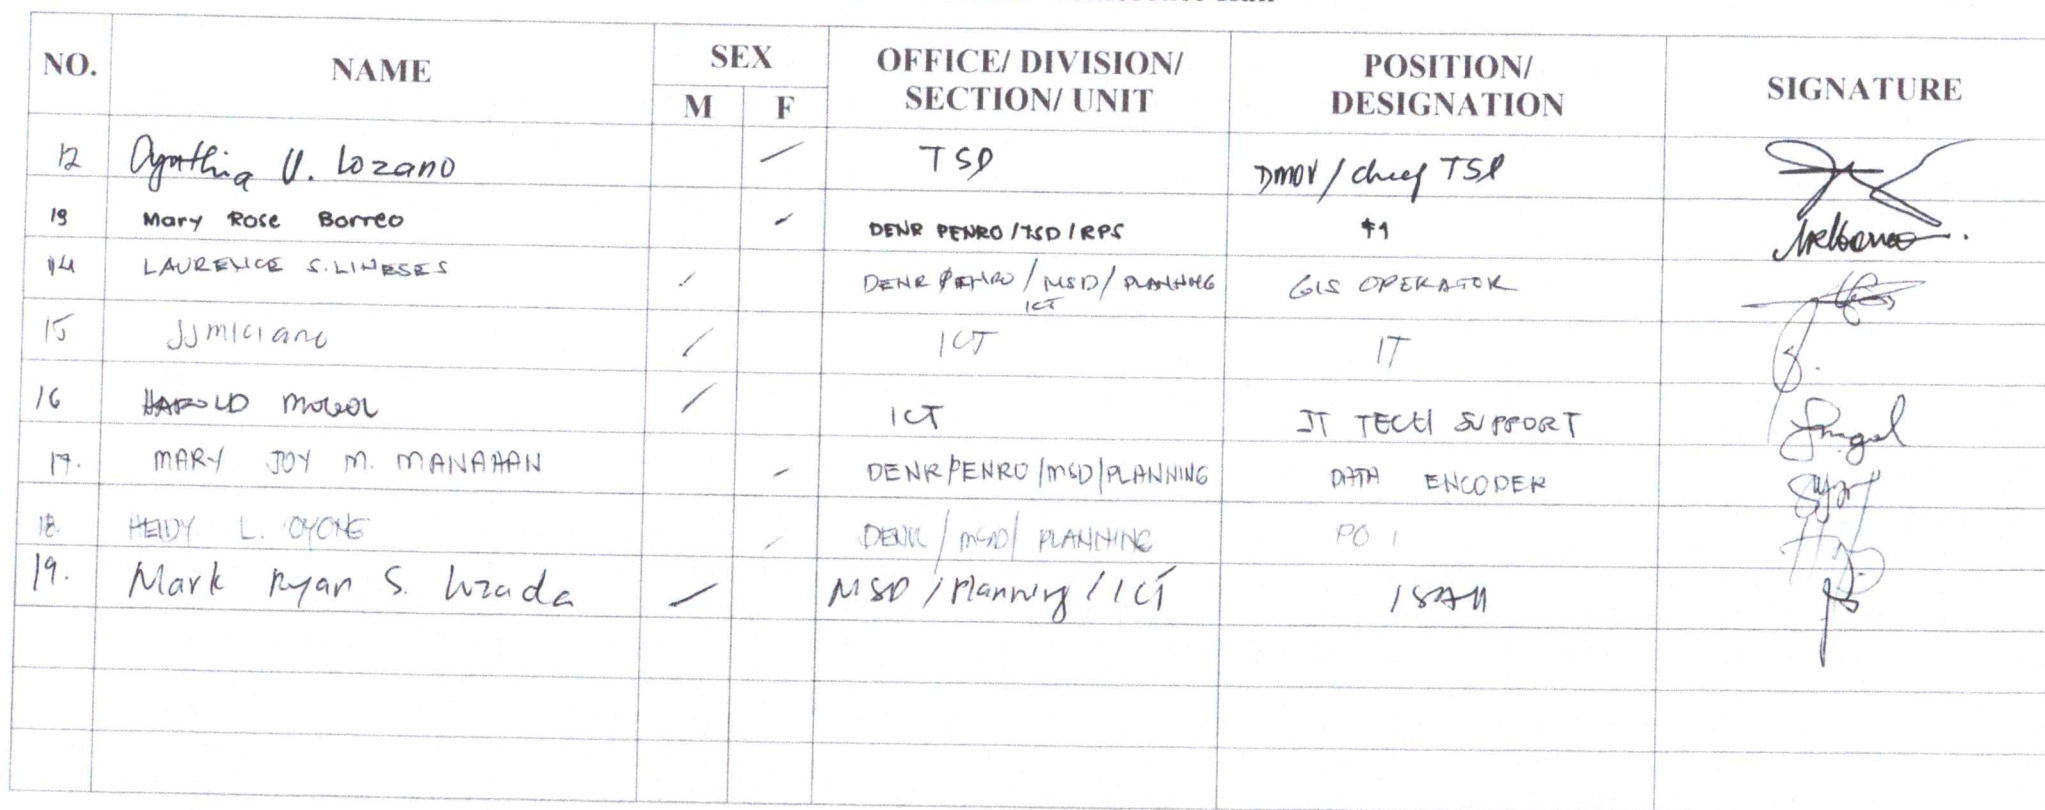 NO. NAME SEX M F OFFICE/ DIVISION/ SECTION/ UNIT POSITION/ DESIGNATION SIGNATURE
12 Cynthia U. Lozano TSD DMOV / chief TSD
13 Mary Rose Borreo DENR PENRO / TSD / RPS F1
14 LAURENCE S. LINESES DENR PENRO / MSD / PLANNING ICT GIS OPERATOR
15 JJ Miciano ICT IT
16 HAROLD ICT IT TECH SUPPORT
17. MARY JOY M. MANAHAN DENR/PENRO/MSD/PLANNING DATA ENCODER
18. HEIDY L. OYONG DENR/ MSD/ PLANNING PO 1
19. Mark Ryan S. Luzada MSD / Planning / ICT